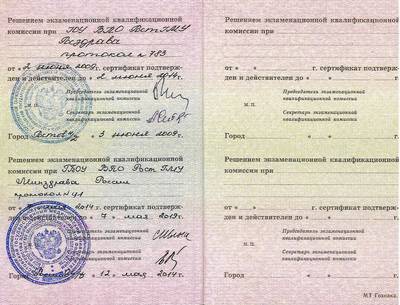 Решением экзаменационной квалификационной
комиссии при ГОУ ВПО РостГМУ
Росздрава
протокол № 783
от « 2 июня 2009г. сертификат подтверж-
ден и действителен до « 2 июня 2014г.
Председатель экзаменационной
квалификационной комиссии
М. П.
Секретарь экзаменационной
квалификационной комиссии
Город Ростов н/Д « 3 июня 2009г.
Решением экзаменационной квалификационной
комиссии при ГБОУ ВПО РостГМУ
Минздрава России
протокол №
от « 2014г. сертификат подтверж-
ден и действителен до « 7 » мая 2019г.
Председатель экзаменационной
квалификационной комиссии
М. П.
Секретарь экзаменационной
квалификационной комиссии
Город « 12 » мая 2014г.
Решением экзаменационной квалификационной
комиссии при
от « » г. сертификат подтверж-
ден и действителен до « » г.
Председатель экзаменационной
квалификационной комиссии
М. П.
Секретарь экзаменационной
квалификационной комиссии
Город « » г.
Решением экзаменационной квалификационной
комиссии при
от « » г. сертификат подтверж-
ден и действителен до « » г.
Председатель экзаменационной
квалификационной комиссии
М. П.
Секретарь экзаменационной
квалификационной комиссии
Город « » г.
МТ Гознака.